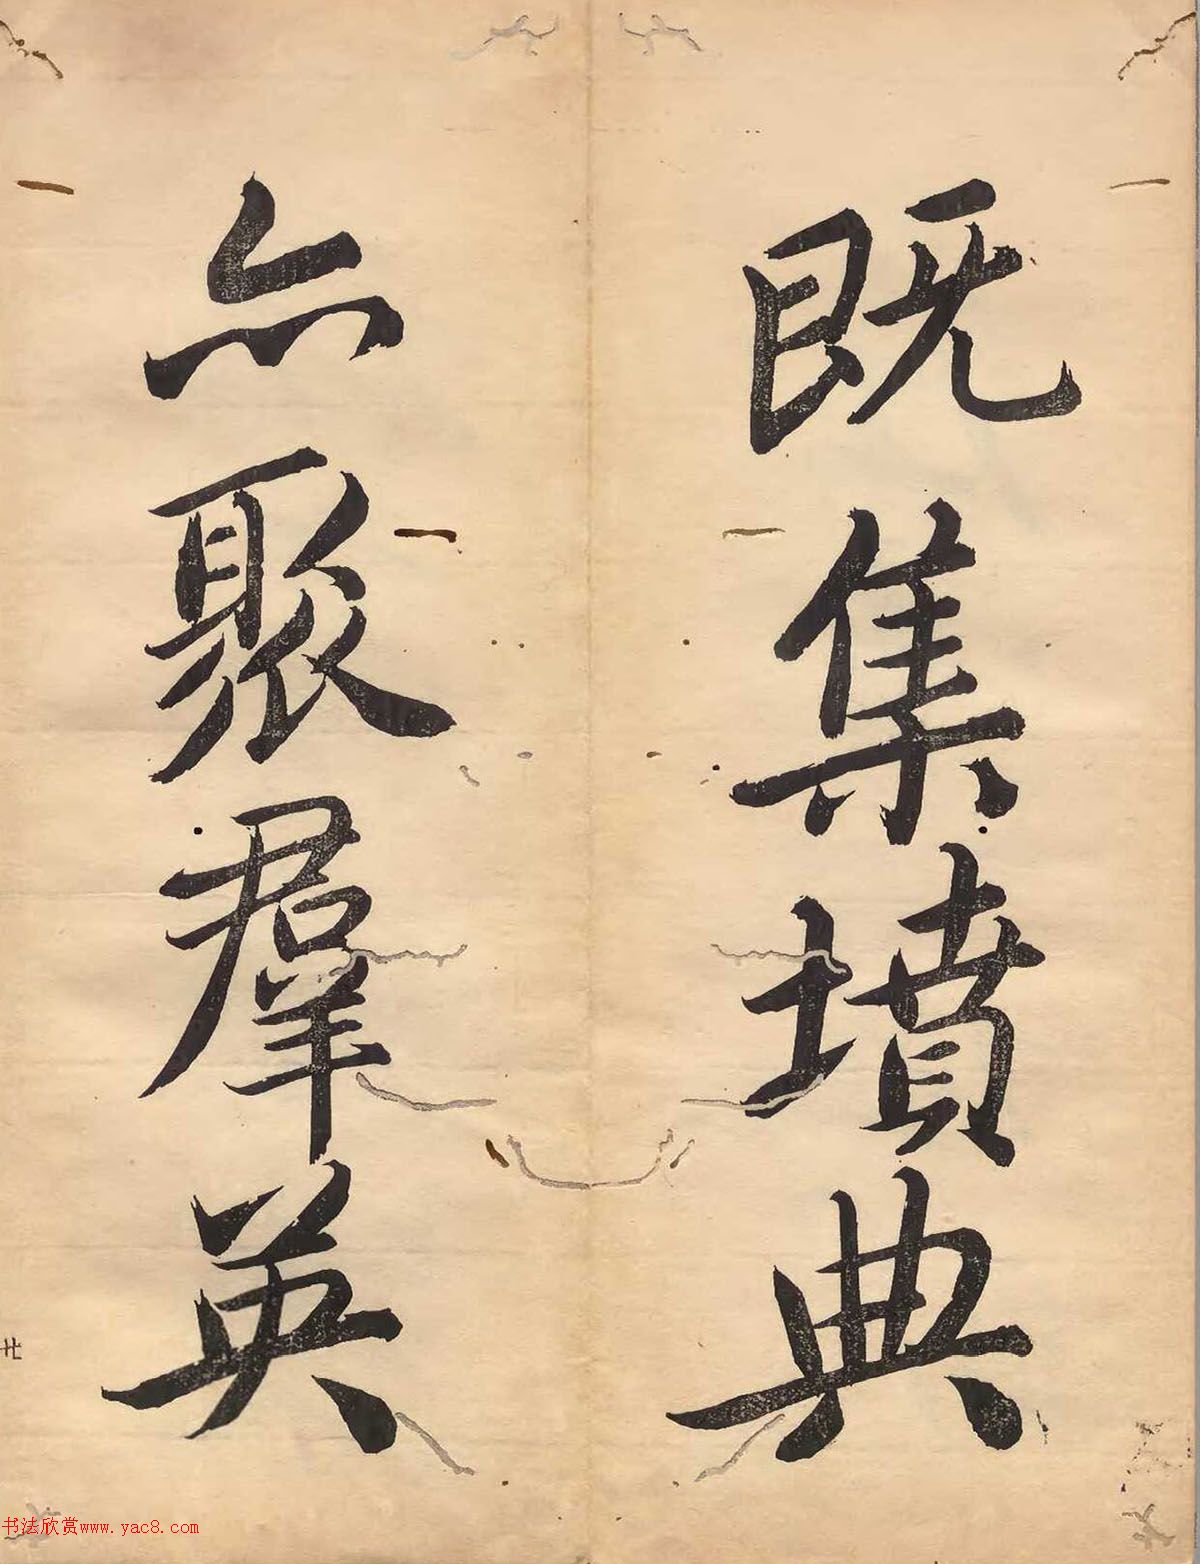 既集墳典
亦聚羣英
廿
书法欣赏www.yac8.com